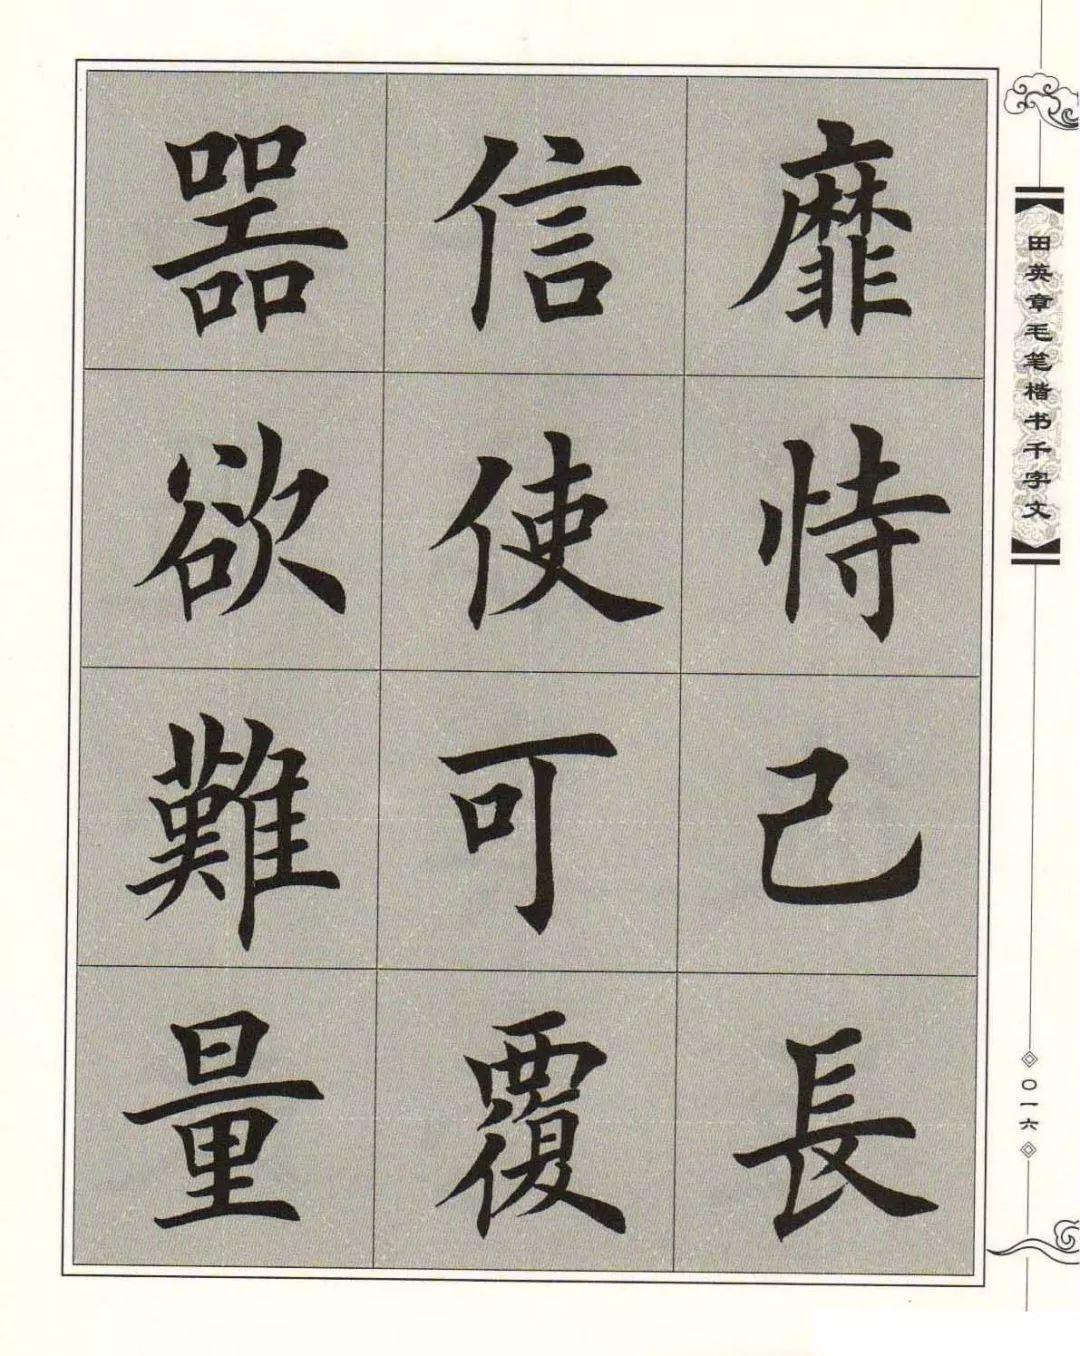 靡恃己長
信使可覆
器欲難量
田英章毛笔楷书千字文
〇一六